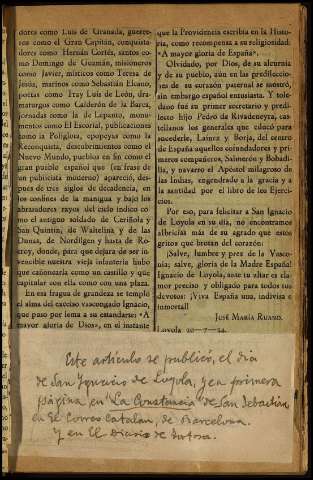 dores como Luis de Granada, guerre-
ros como el Gran Capitán, conquista-
dores como Hernán Cortés, santos co-
mo Domingo de Guzmán, misioneros
como Javier, místicos como Teresa de
Jesús, marinos como Sebastián Elcano,
poetas como Fray Luis de León, dra-
maturgos como Calderón de la Barca,
jornadas como la de Lepanto, monu-
mentos como El Escorial, publicaciones
como la Políglota, epopeyas como la
Reconquista, descubrimientos como el
Nuevo Mundo, pueblos en fin como el
gran pueblo español que (en frase de
un publicista moderno) apareció, des-
pués de tres siglos de decadencia, en
los confines de la manigua y bajo los
abrasadores rayos del cielo indico co-
mo el antiguo soldado de Ceriñola y
San Quintín, de Waitelina y de las
Dunas, de Nordligen y hasta de Ro-
croy, donde, para que dejara de ser in-
vencible nuestra vieja infantería hubo
que cañonearla como un castillo y que
capitular con ella como con una plaza.
En esa fragua de grandeza se templó
el alma del excelso vascongado Ignacio,
que puso por lema a su estandarte: «A
mayor gloria de Dios», en el instante
que la Providencia escribía en la Histo-
ria, como recompensa a su religiosidad:
«A mayor gloria de España».
Olvidado, por Dios, de su alcurnia
y de su pueblo, aún en las predileccio-
nes de su corazón paternal se mostró,
sin embargo español entusiasta. Y tole-
dano fué su primer secretario y predi-
lecto hijo Pedro de Rivadeneyra, cas-
tellanos los generales que educó para
sucederle, Laínez y Borja, del centro
de España aquellos cofundadores y pri-
meros compañeros, Salmerón y Bobadi-
lla, y navarro el Apóstol milagroso de
las Indias, engendrado a la gracia y a
la santidad por el libro de los Ejerci-
cios.
Por eso, para felicitar a San Ignacio
de Loyola en su día, no encontramos
albricias más de su agrado que estos
gritos que brotan del corazón:
¡Salve, lumbre y prez de la Vasco-
nia; salve, gloria de la Madre España!
Ignacio de Loyola, ante tu altar es cla-
mor preciso y obligado para todos tus
devotos: ¡Viva España una, indivisa e
inmortal!
José María Ruano.
Loyola 20-7-24.
Este artículo se publicó, el día
de San Ignacio de Loyola, y en primera
página, en "La Constancia" de San Sebastián
en El Correo Catalan, de Barcelona.
y en El Diario de Tortosa.